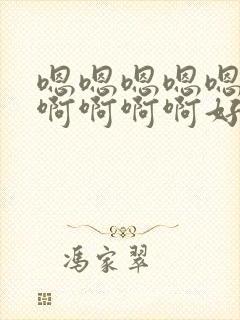 嗯嗯嗯嗯嗯
啊啊啊啊好
冯家翠